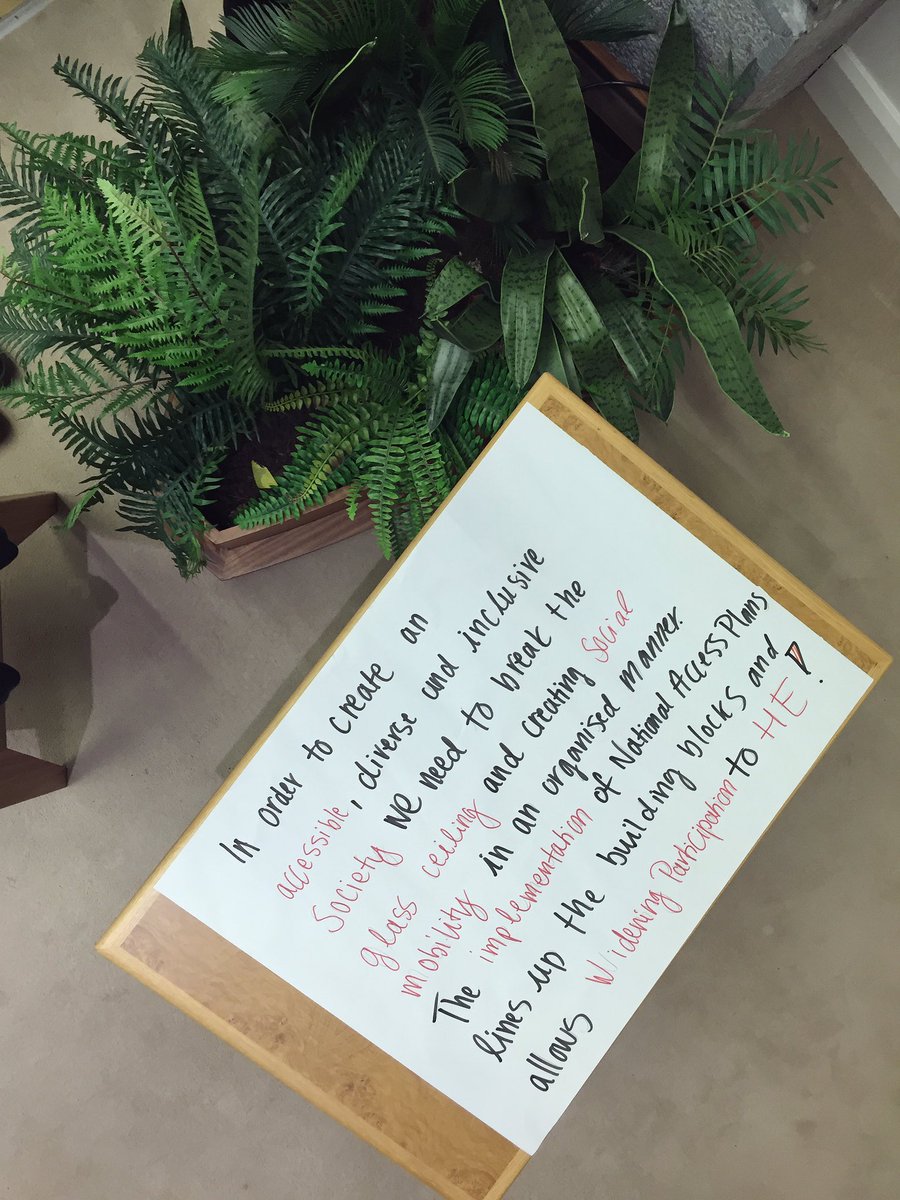 In order to create an
accessible, diverse and inclusive
Society we need to break the
glass ceiling and creating Social
mobility in an organised manner.
The implementation of National Access Plans
lines up the building blocks and
allows Widening Participation to HE!